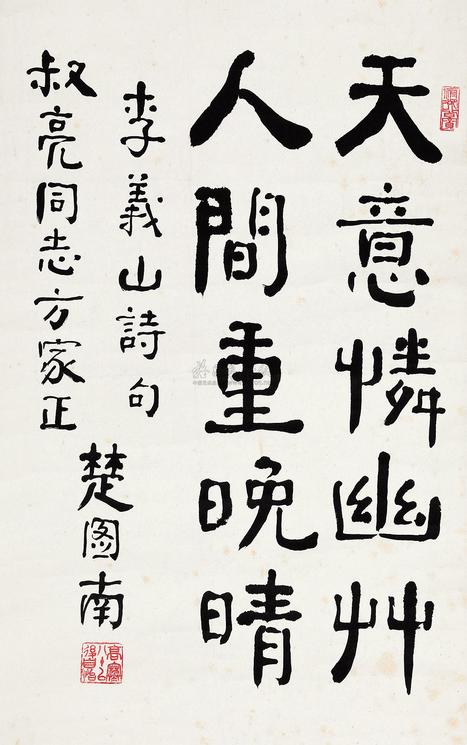 天意憐幽艸
人間重晚晴
李義山詩句
叔亮同志方家正
楚图南